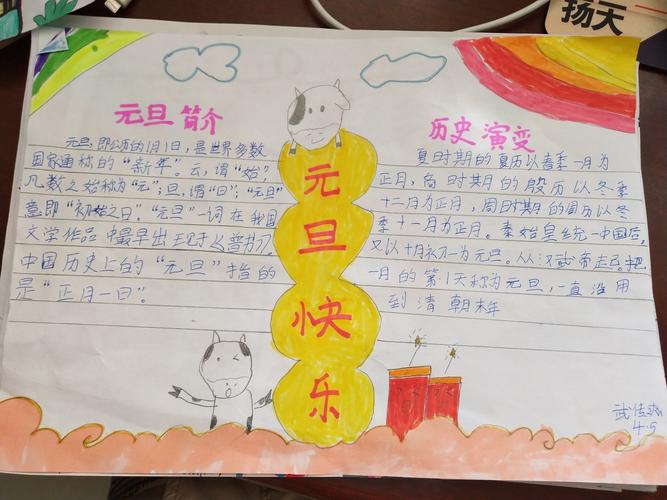 扬天
元旦简介
元旦,即公历的1月1日,是世界多数
国家通称的“新年”。云,谓“始”,
凡数之始称为“元”;旦,谓“日”;“元旦”
意即“初始之日”。“元旦”一词在我国
文学作品中最早出现
中国历史上的“元旦”指的
是“正月一日”。
元
旦
快
乐
历史演变
夏时期的夏历以春季一月为
正月,商时期的殷历以冬季
十二月为正月,周时期的周历以冬
季十一月为正月。秦始皇统一中国后,
又以十月初一为元旦。从汉武帝起,把
一月的第1天称为元旦,一直沿用
到清朝末年
武佳
4.5